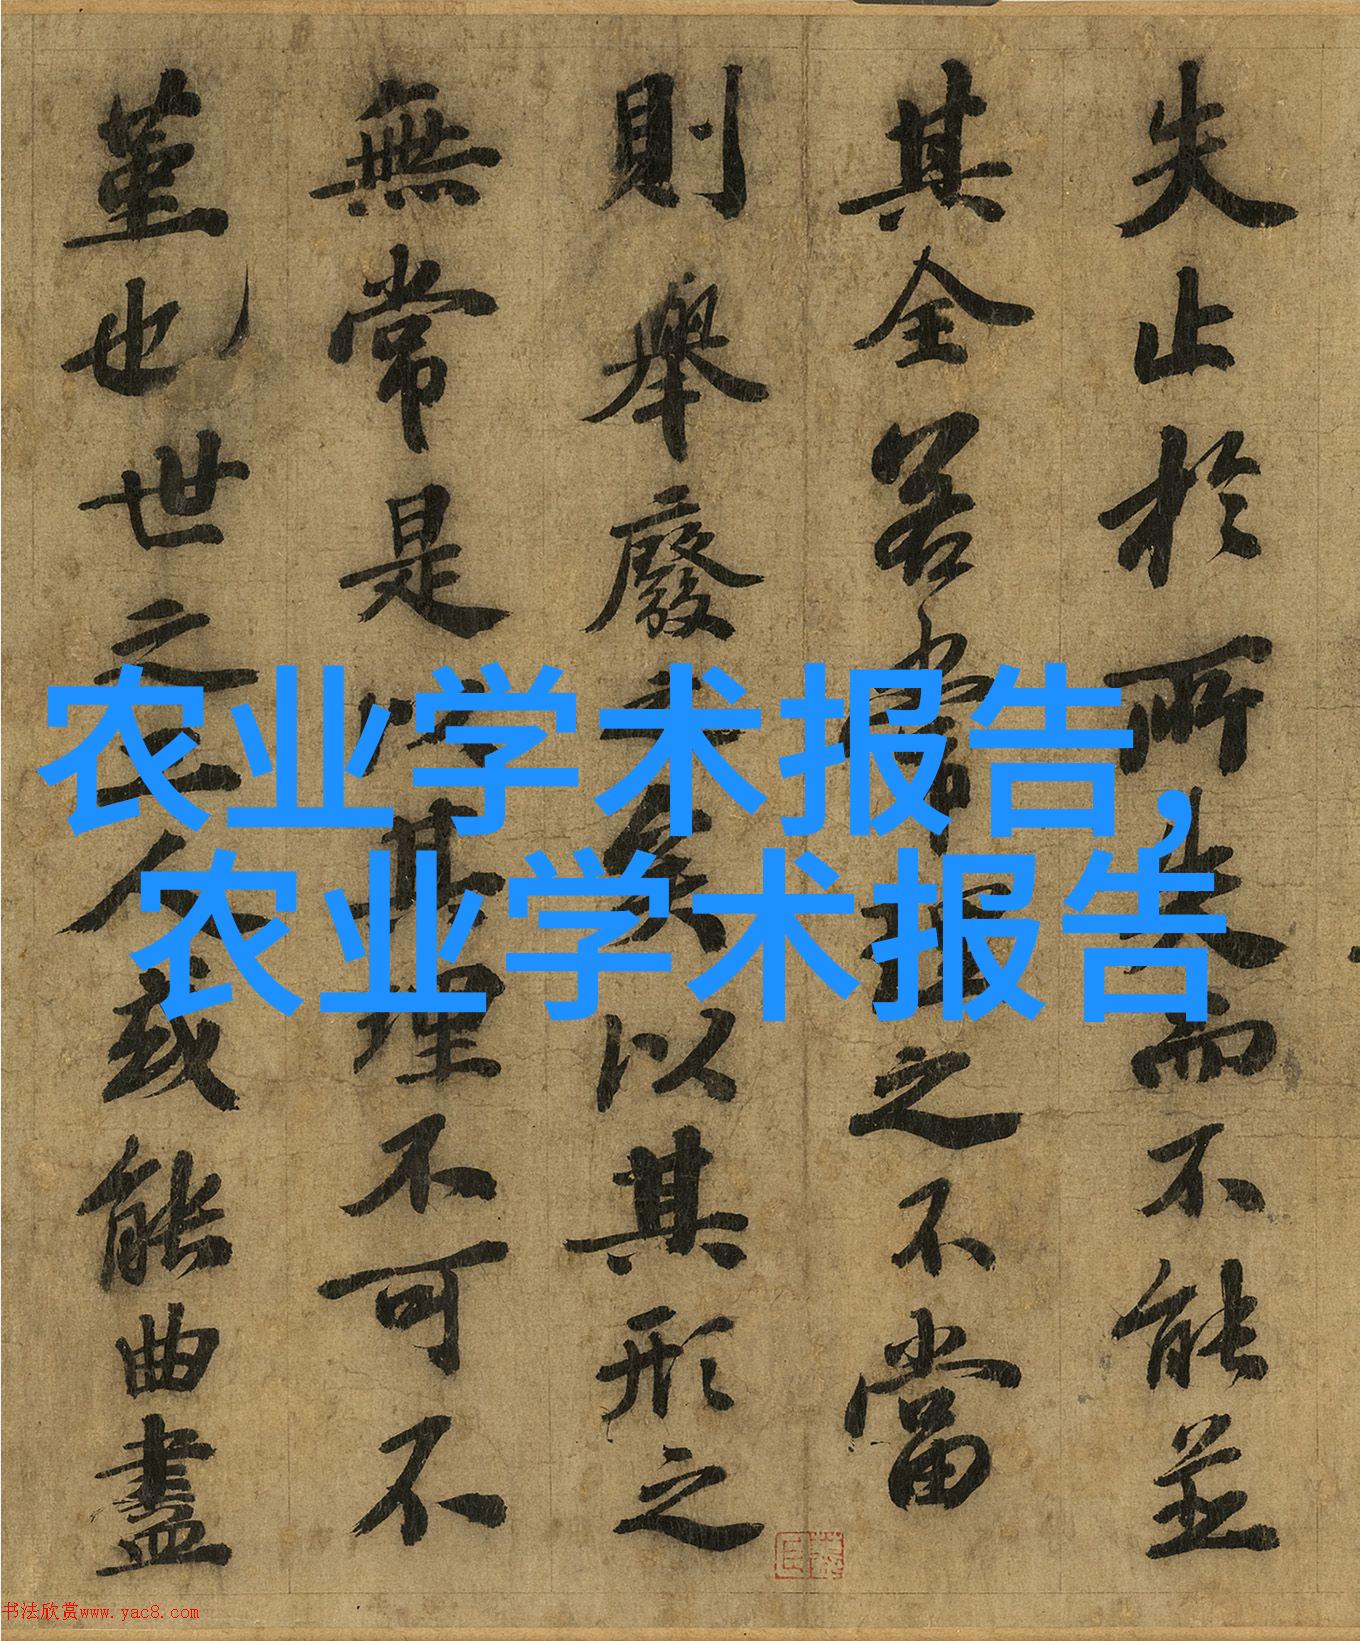 失止於所失而不能並
其全若常理之不當
則舉廢之矣以其形之
無常是以其理不可不
堇也世之工人或能曲盡
农业学术报告,
农业学术报告
书法欣赏www.yac8.com